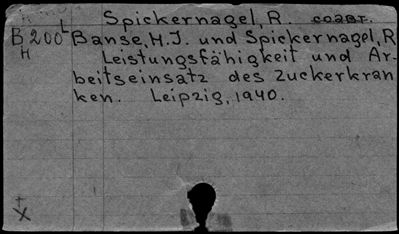 Spickernagel, R. соавт.
B 200 L Banse, H.J. und Spickernagel, R
H Leistungsfähigkeit und Ar-
beitseinsatz des Zuckerkran
ken. Leipzig, 1940.
+
X